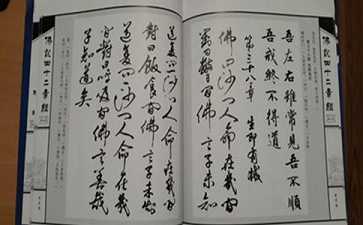 佛說四十二章經
吾左右雖常見吾不順
吾戒終不得道
第三十八章 生即有滅
佛問沙門人命在幾間
對曰數日間佛言子未知
道復問一沙門人命在幾間
對曰飯食間佛言子未知
道復問一沙門人命在幾間
對曰呼吸間佛言善哉
子知道矣
佛說四十二章經